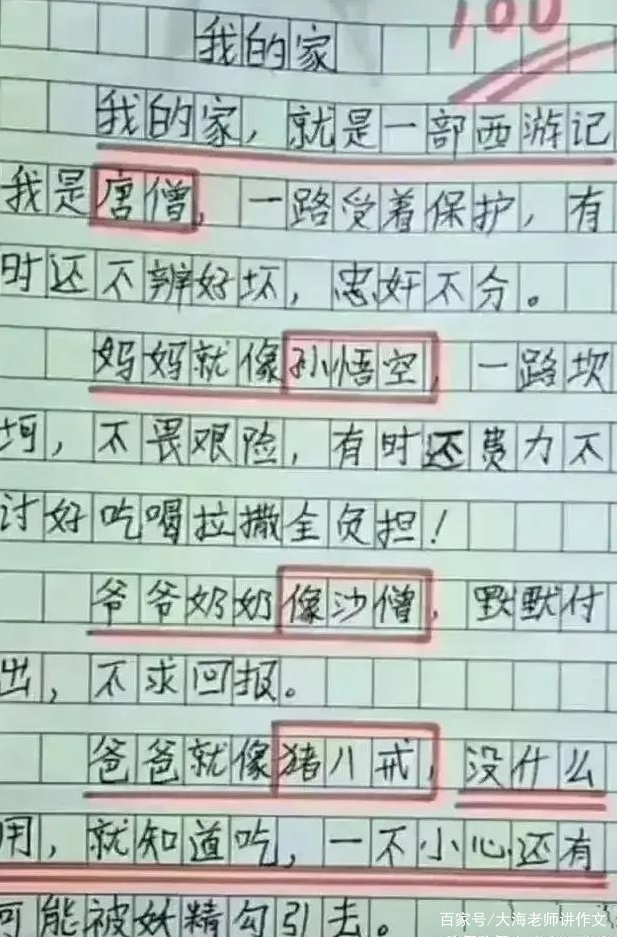 100
我的家
我的家，就是一部西游记
我是唐僧，一路受着保护，有
时还不辨好坏，忠奸不分。
妈妈就像孙悟空，一路坎
坷，不畏艰险，有时还费力不
讨好吃喝拉撒全负担！
爷爷奶奶像沙僧，默默付
出，不求回报。
爸爸就像猪八戒，没什么
用，就知道吃，一不小心还有
可能被妖精勾引去。
百家号/大海老师讲作文